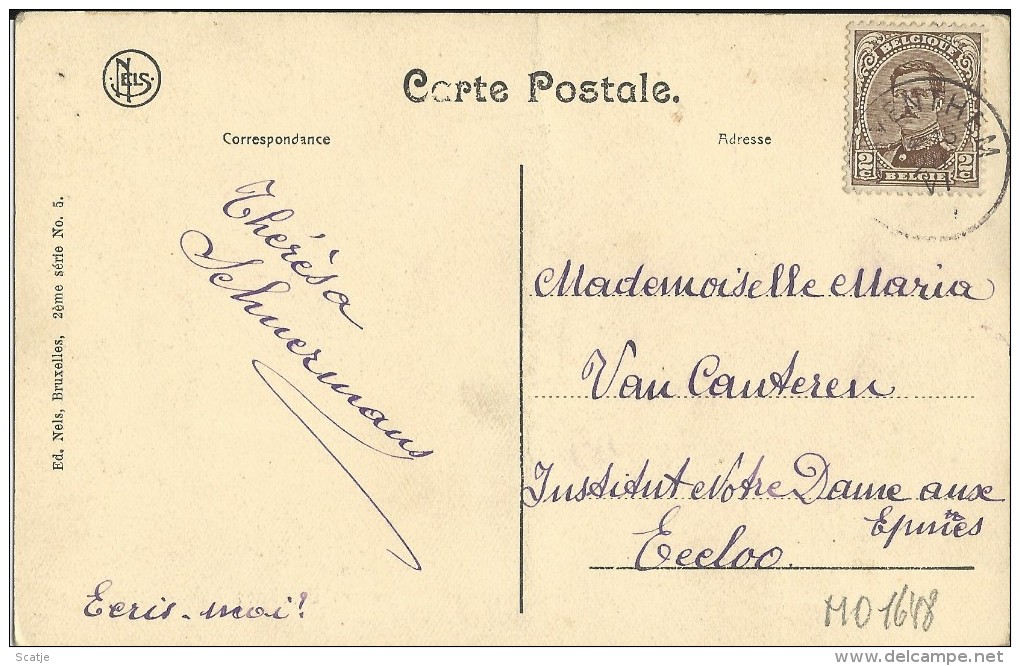 NELS.
Carte Postale.
Correspondance
Adresse
BELGIQUE
2c 2c
BELGIE
Thérèsa
Schuermans
Ecris-moi!
Mademoiselle Maria
Van Canteren
Institut Notre Dame aux
Epines
Eecloo.
MO 1648
Ed. Nels, Bruxelles, 2ème série No. 5.
Scatje
delcampe.net